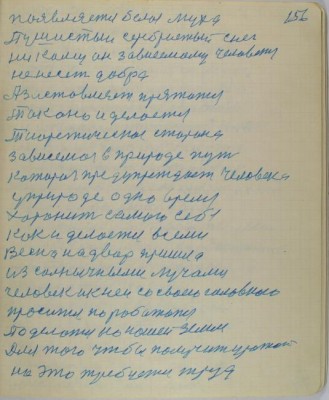 156
появляется белая мука
Пушистый серебристый снег
никому он зависимому человеку
ненесет добра
Азставляет прятатся
Такано и делается
Теоретическая старана
зависемая в природе пут
которая предупреждает человека
уприроде одно время
Хоронит самого себя
как и делается всеми
Весна надвар пришла
из солнычными лучами
человек икней со своею головною
просится поработати
По делати на нашей земли
Для того чтобы получит урожай
на это требуется труд